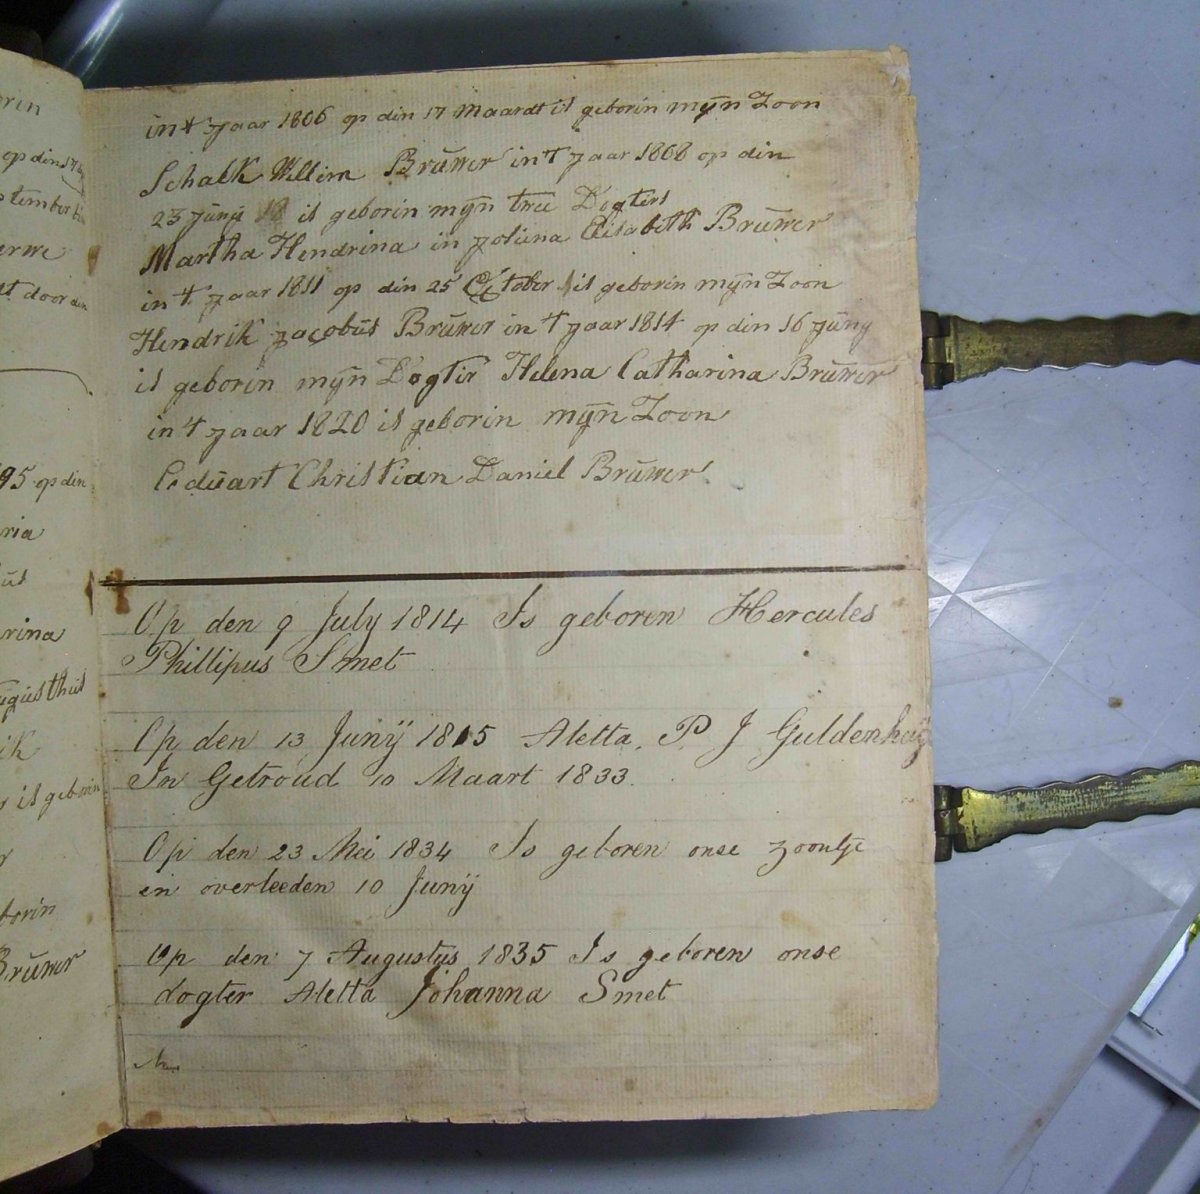 orin
op din 17
ptember
erwe
ut door din
95 op din
ria
üs
rina
ügüsthüs
ik
r is geborin
r
borin
Brüwer
in 't jaar 1806 op din 17 maardt is geborin mÿn Zoon
Schalk Willim Brüwer in 't jaar 1808 op din
23 jünÿ 18 is geborin mÿn twee Dogters
Martha Hendrina in joliena Elisabeth Brüwer
in 't jaar 1811 op din 25 October is geborin mÿn Zoon
Hendrik jacobüs Brüwer in 't jaar 1814 op din 16 jüny
is geborin mÿn Dogtir Helena Catharina Brüwer
in 't jaar 1820 is geborin mÿn Zoon
Edüart Christian Daniel Brüwer
Op den 9 July 1814 Is geboren Hercules
Phillipus Smet
Op den 13 Junÿ 1815 Aletta P J Guldenhuÿ
In Getroud 10 Maart 1833.
Op den 23 Mei 1834 Is geboren onse zoontje
en overleeden 10 Junÿ
Op den 7 Augustus 1835 Is geboren onse
dogter Aletta Johanna Smet